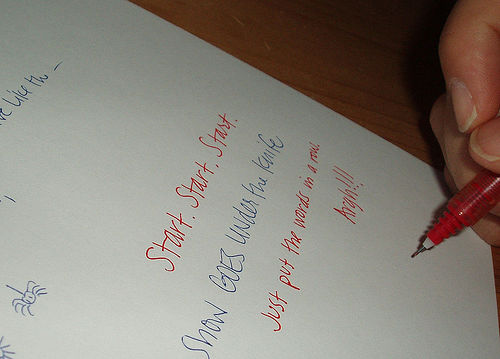 Start. Start. Start.
Show GOES under the knife
Just put the words in a row.
Argh!!!